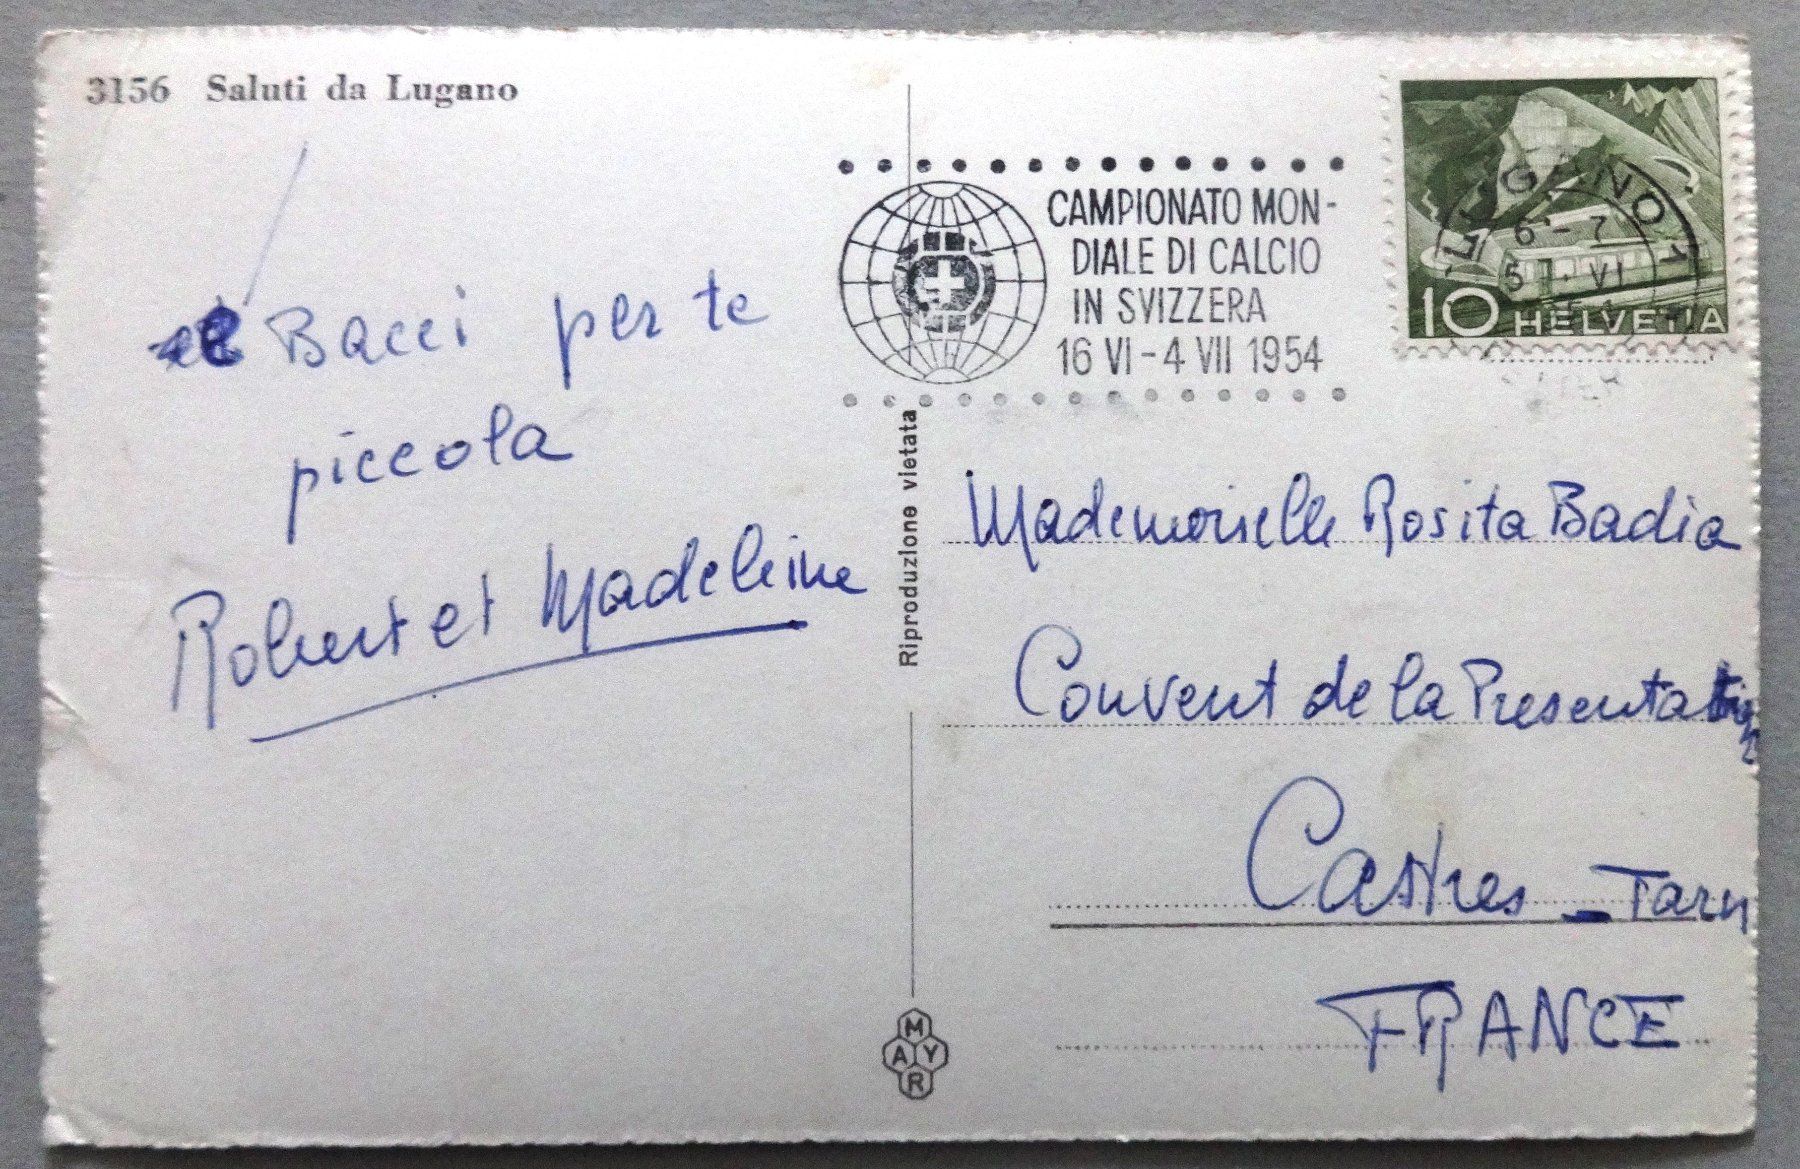 3156 Saluti da Lugano
Bacci per te
piccola
Robert et Madeleine
Riproduzione vietata
MAYR
CAMPIONATO MON-
DIALE DI CALCIO
IN SVIZZERA
16 VI - 4 VII 1954
LUGANO 1
6 - 7
5. VI
10 HELVETIA
Mademoiselle Rosita Badia
Convent de la Presentation
Castres - Tarn
FRANCE